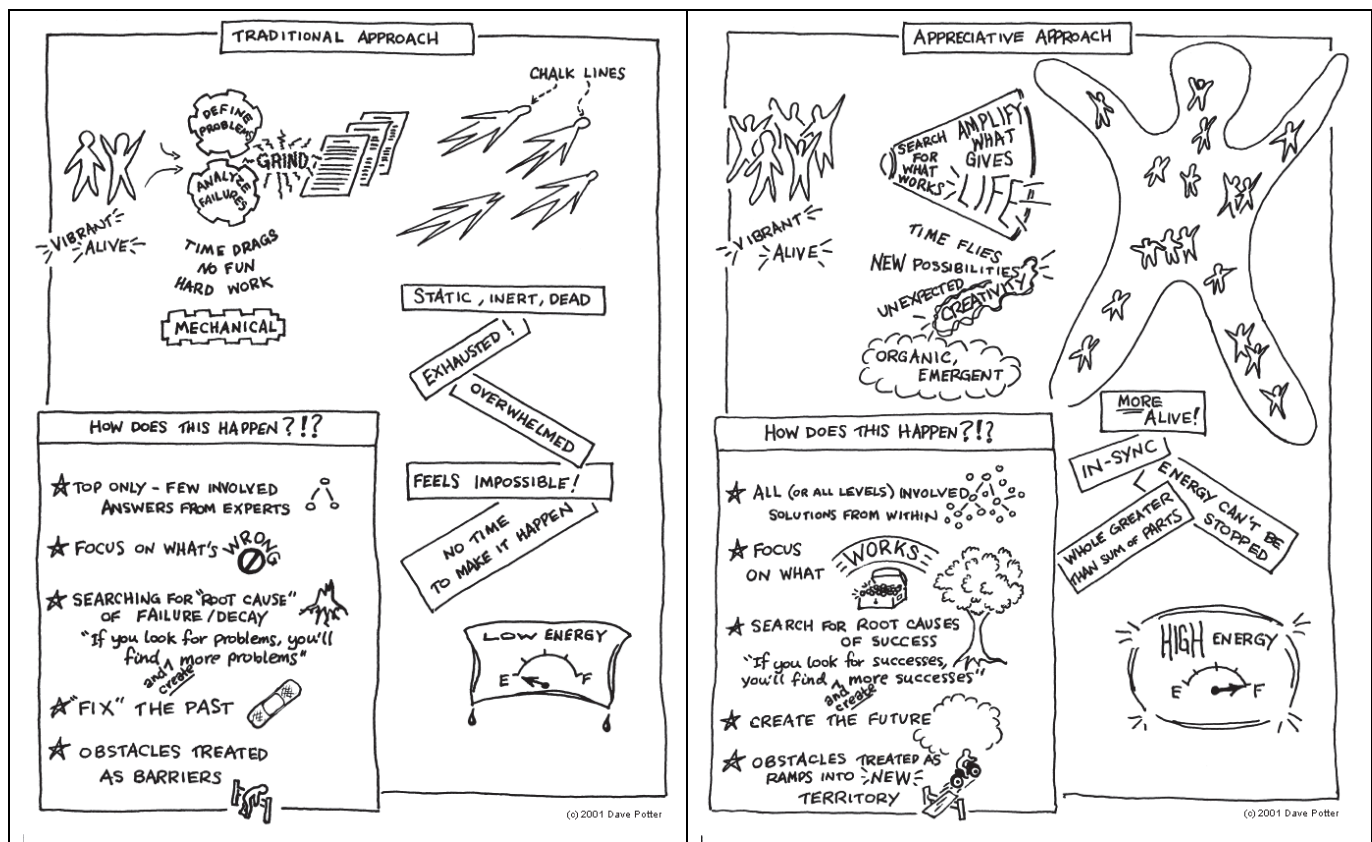 TRADITIONAL APPROACH
CHALK LINES
DEFINE
PROBLEMS
GRIND
ANALYZE
FAILURES
VIBRANT
ALIVE
TIME DRAGS
NO FUN
HARD WORK
MECHANICAL
STATIC, INERT, DEAD
EXHAUSTED!
OVERWHELMED
FEELS IMPOSSIBLE!
NO TIME
TO MAKE IT HAPPEN
LOW ENERGY
E F
HOW DOES THIS HAPPEN?!?
TOP ONLY - FEW INVOLVED
ANSWERS FROM EXPERTS
FOCUS ON WHAT'S WRONG
SEARCHING FOR "ROOT CAUSE"
OF FAILURE/DECAY
"If you look for problems, you'll
find more problems"
and
create
"FIX" THE PAST
OBSTACLES TREATED
AS BARRIERS
(c) 2001 Dave Potter
APPRECIATIVE APPROACH
VIBRANT
ALIVE
SEARCH
FOR
WHAT
WORKS
AMPLIFY
WHAT
GIVES
LIFE
TIME FLIES
NEW POSSIBILITIES
UNEXPECTED
CREATIVITY
ORGANIC,
EMERGENT
MORE
ALIVE!
IN-SYNC
ENERGY CAN'T BE
STOPPED
WHOLE GREATER
THAN SUM OF PARTS
HIGH ENERGY
E F
HOW DOES THIS HAPPEN?!?
ALL (OR ALL LEVELS) INVOLVED
SOLUTIONS FROM WITHIN
FOCUS
ON WHAT
WORKS
SEARCH FOR ROOT CAUSES
OF SUCCESS
"If you look for successes,
you'll find more successes"
and
create
CREATE THE FUTURE
OBSTACLES TREATED AS
RAMPS INTO NEW
TERRITORY
(c) 2001 Dave Potter